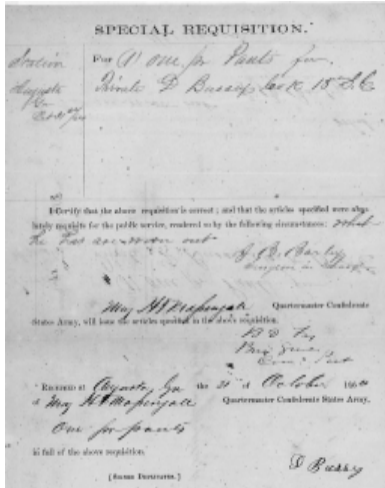 SPECIAL REQUISITION.
Station
Augusta
Ga
For (1) one pr Pants for
Private D Bussey Co K 18 S.C
I Certify that the above requisition is correct; and that the articles specified were abso-
lutely requisite for the public service, rendered so by the following circumstances: What
he has are worn out
Surgeon in Charge
Maj Quartermaster Confederate
States Army, will issue the articles specified in the above requisition.
B D Fry
Brig Genl
Received at Augusta Ga the 21 of October 1864
of Maj Quartermaster Confederate States Army,
One pr pants
in full of the above requisition.
D Bussey
[Signed Duplicates.]